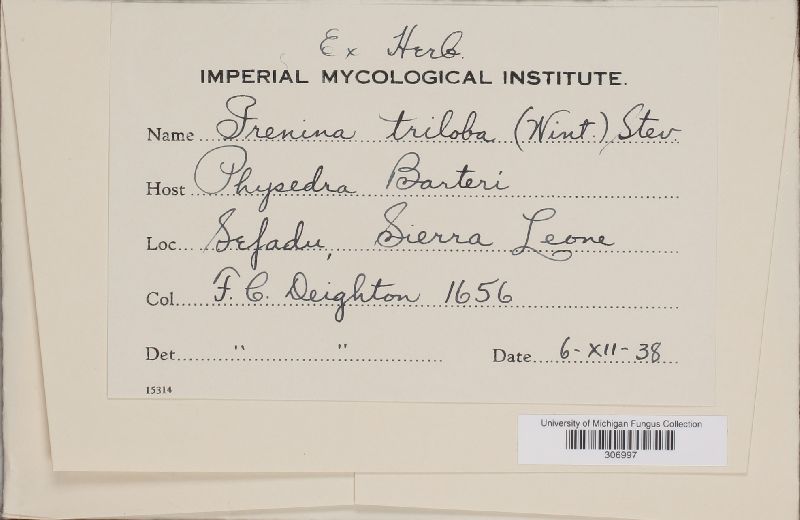 Ex Herb.
IMPERIAL MYCOLOGICAL INSTITUTE.
Name Irenina triloba (Wint.) Stev.
Host Physedra Barteri
Loc Sefadu, Sierra Leone
Col F. C. Deighton 1656
Det " " Date 6-XII-38
15314
University of Michigan Fungus Collection
306997